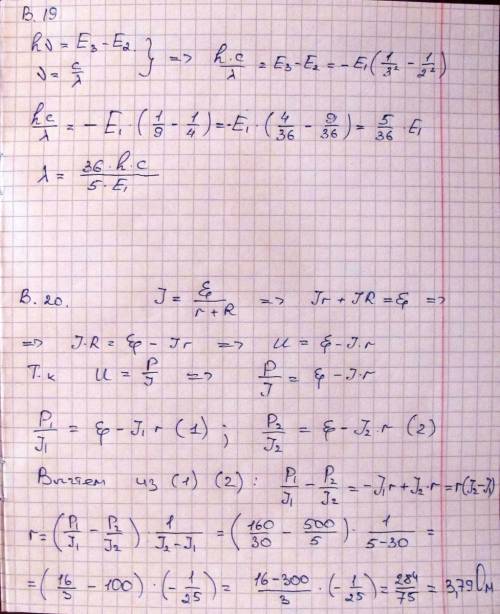 В. 19
hν = E₃ – E₂
ν = c/λ } => h·c/λ = E₃ – E₂ = – E₁(1/3² – 1/2²)
hc/λ = – E₁ · (1/9 – 1/4) = -E₁ · (4/36 – 9/36) = 5/36 · E₁
λ = 36·h·c / 5·E₁
В. 20. J = ℰ/(r + R) => Jr + JR = ℰ =>
=> J·R = ℰ – Jr => U = ℰ – J·r
Т.к U = P/J => P/J = ℰ – J·r
P₁/J₁ = ℰ – J₁·r (1) ; P₂/J₂ = ℰ – J₂·r (2)
Вычтем из (1) (2): P₁/J₁ – P₂/J₂ = –J₁r + J₂·r = r(J₂–J₁)
r = (P₁/J₁ – P₂/J₂) · 1/(J₂–J₁) = (160/30 – 500/5) · 1/(5–30) =
= (16/3 – 100) · (–1/25) = (16–300)/3 · (–1/25) = 284/75 = 3,79 Ом